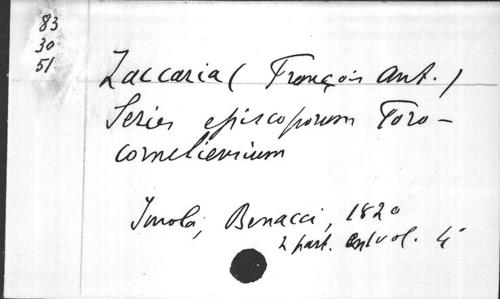 83
30
51
Zaccaria ( François Ant. )
Series episcoporum Foro-
corneliensium
Imola, Benacci, 1820
2 part. en 1 vol. 4°